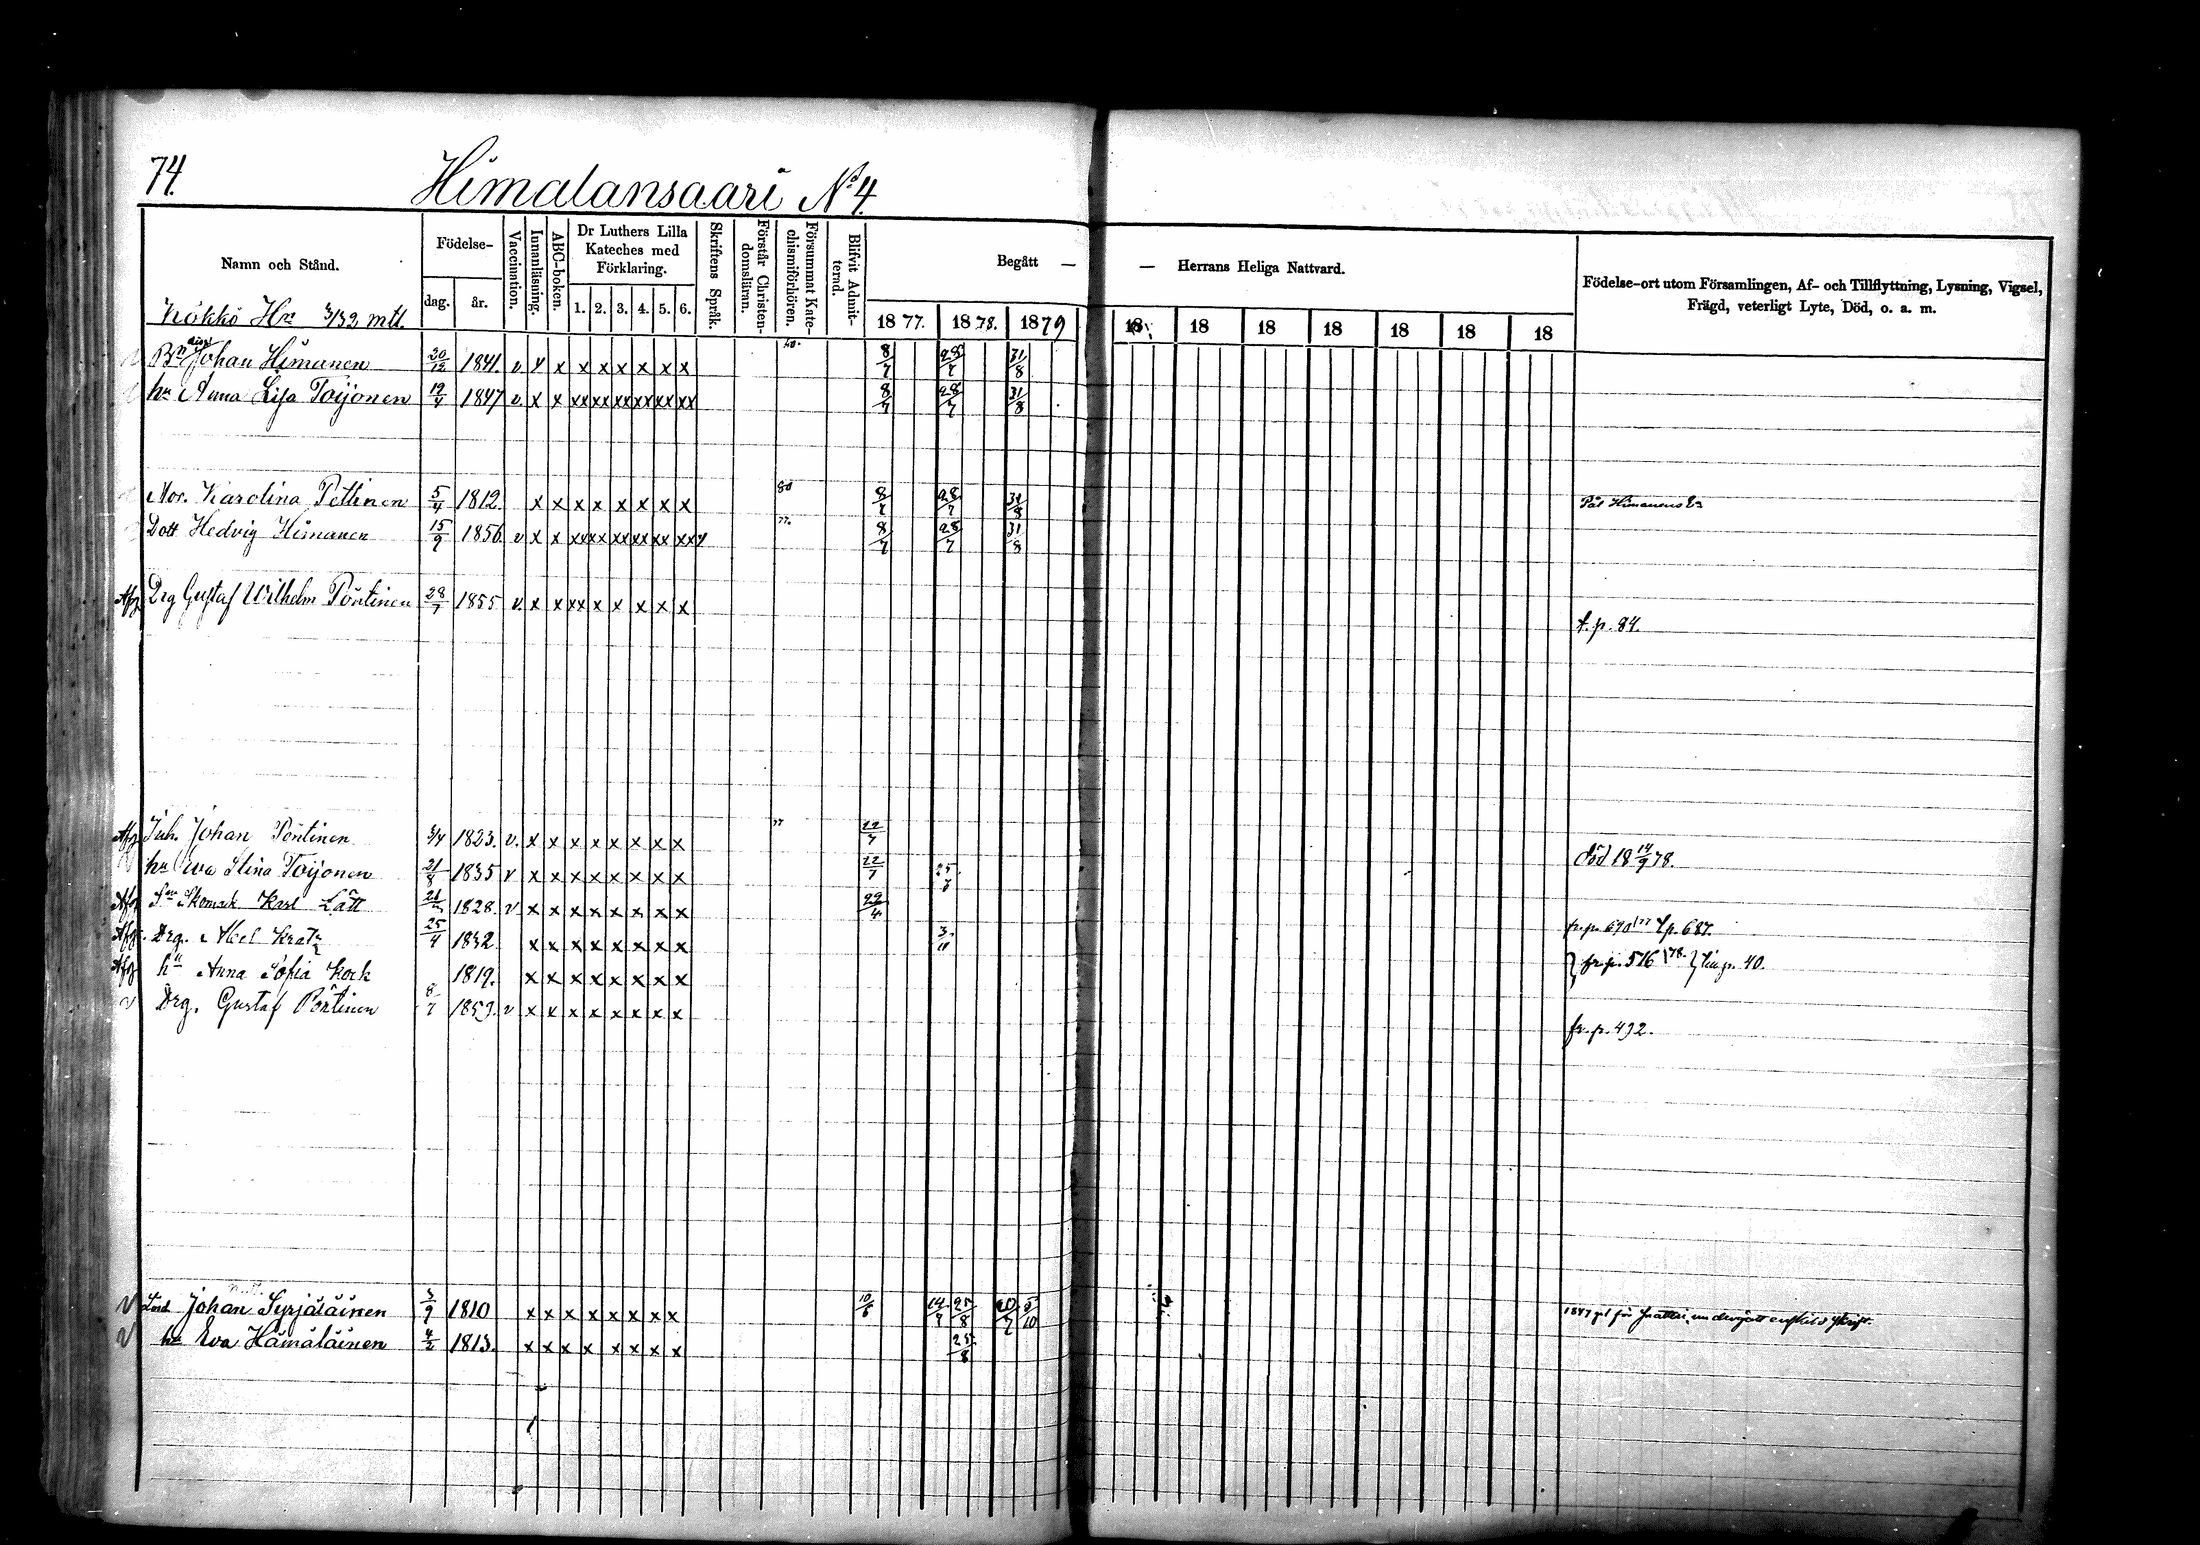 74.
Himalansaari No 4.
Namn och Stånd.
Födelse-
dag.
år.
Vaccination.
Innanläsning.
ABC-boken.
Dr Luthers Lilla Kateches med Förklaring.
1. 2. 3. 4. 5. 6.
Skriftens Språk.
Förstår Christendomsläran.
Försummat Katechismiförhören.
Blifvit Admitterad.
Begått — — Herrans Heliga Nattvard.
1877. 1878. 1879 18 18 18 18 18 18 18
Födelse-ort utom Församlingen, Af- och Tillflyttning, Lysning, Vigsel, Frägd, veterligt Lyte, Död, o. a. m.
Kökkö Hn 3/32 mtl.
Bn Johan Himanen 20/12 1841. v v x x x x x x x 8/7 28/7 31/8
hu Anna Lisa Toijonen 19/4 1847 v x x xx xx xx xx xx xx 8/7 28/7 31/8
Mor. Karolina Pettinen 5/4 1812. x x x x x x x x 80 8/7 28/7 31/8 Pål Himanens
Dott Hedvig Himanen 15/9 1856 v x x xx xx xx xx xx xx 77. 8/7 28/7 31/8
Afg Drg Gustaf Wilhelm Pöntinen 28/7 1855 v. x x xx x x x x x
t. p. 84.
Afg Inh. Johan Pöntinen 3/4 1823. v. x x x x x x x x 77 22/7
död 18 14/9 78.
hu Eva Stina Toijonen 21/8 1835 v x x x x x x x x 22/7 25/8
Afg Skomak Karl Lått 1828. v x x x x x x x x 22/4
fr. p. 690 /77 t p. 687.
Afg. Drg. Axel Kratz 25/4 1832 x x x x x x x x 3/11
Afg hu Anna Sofia Kock 1819. x x x x x x x x
fr. p. 516 /78. p. 40.
v Drg. Gustaf Pöntinen 8/7 1859. v x x x x x x x x
fr. p. 492.
v Johan Syrjäläinen 3/9 1810 x x x x x x x x 10/6 14/7 25/8 20/7 5/10 1847 för
v hu Eva Hämäläinen 4/2 1813. x x x x x x x x 25/8